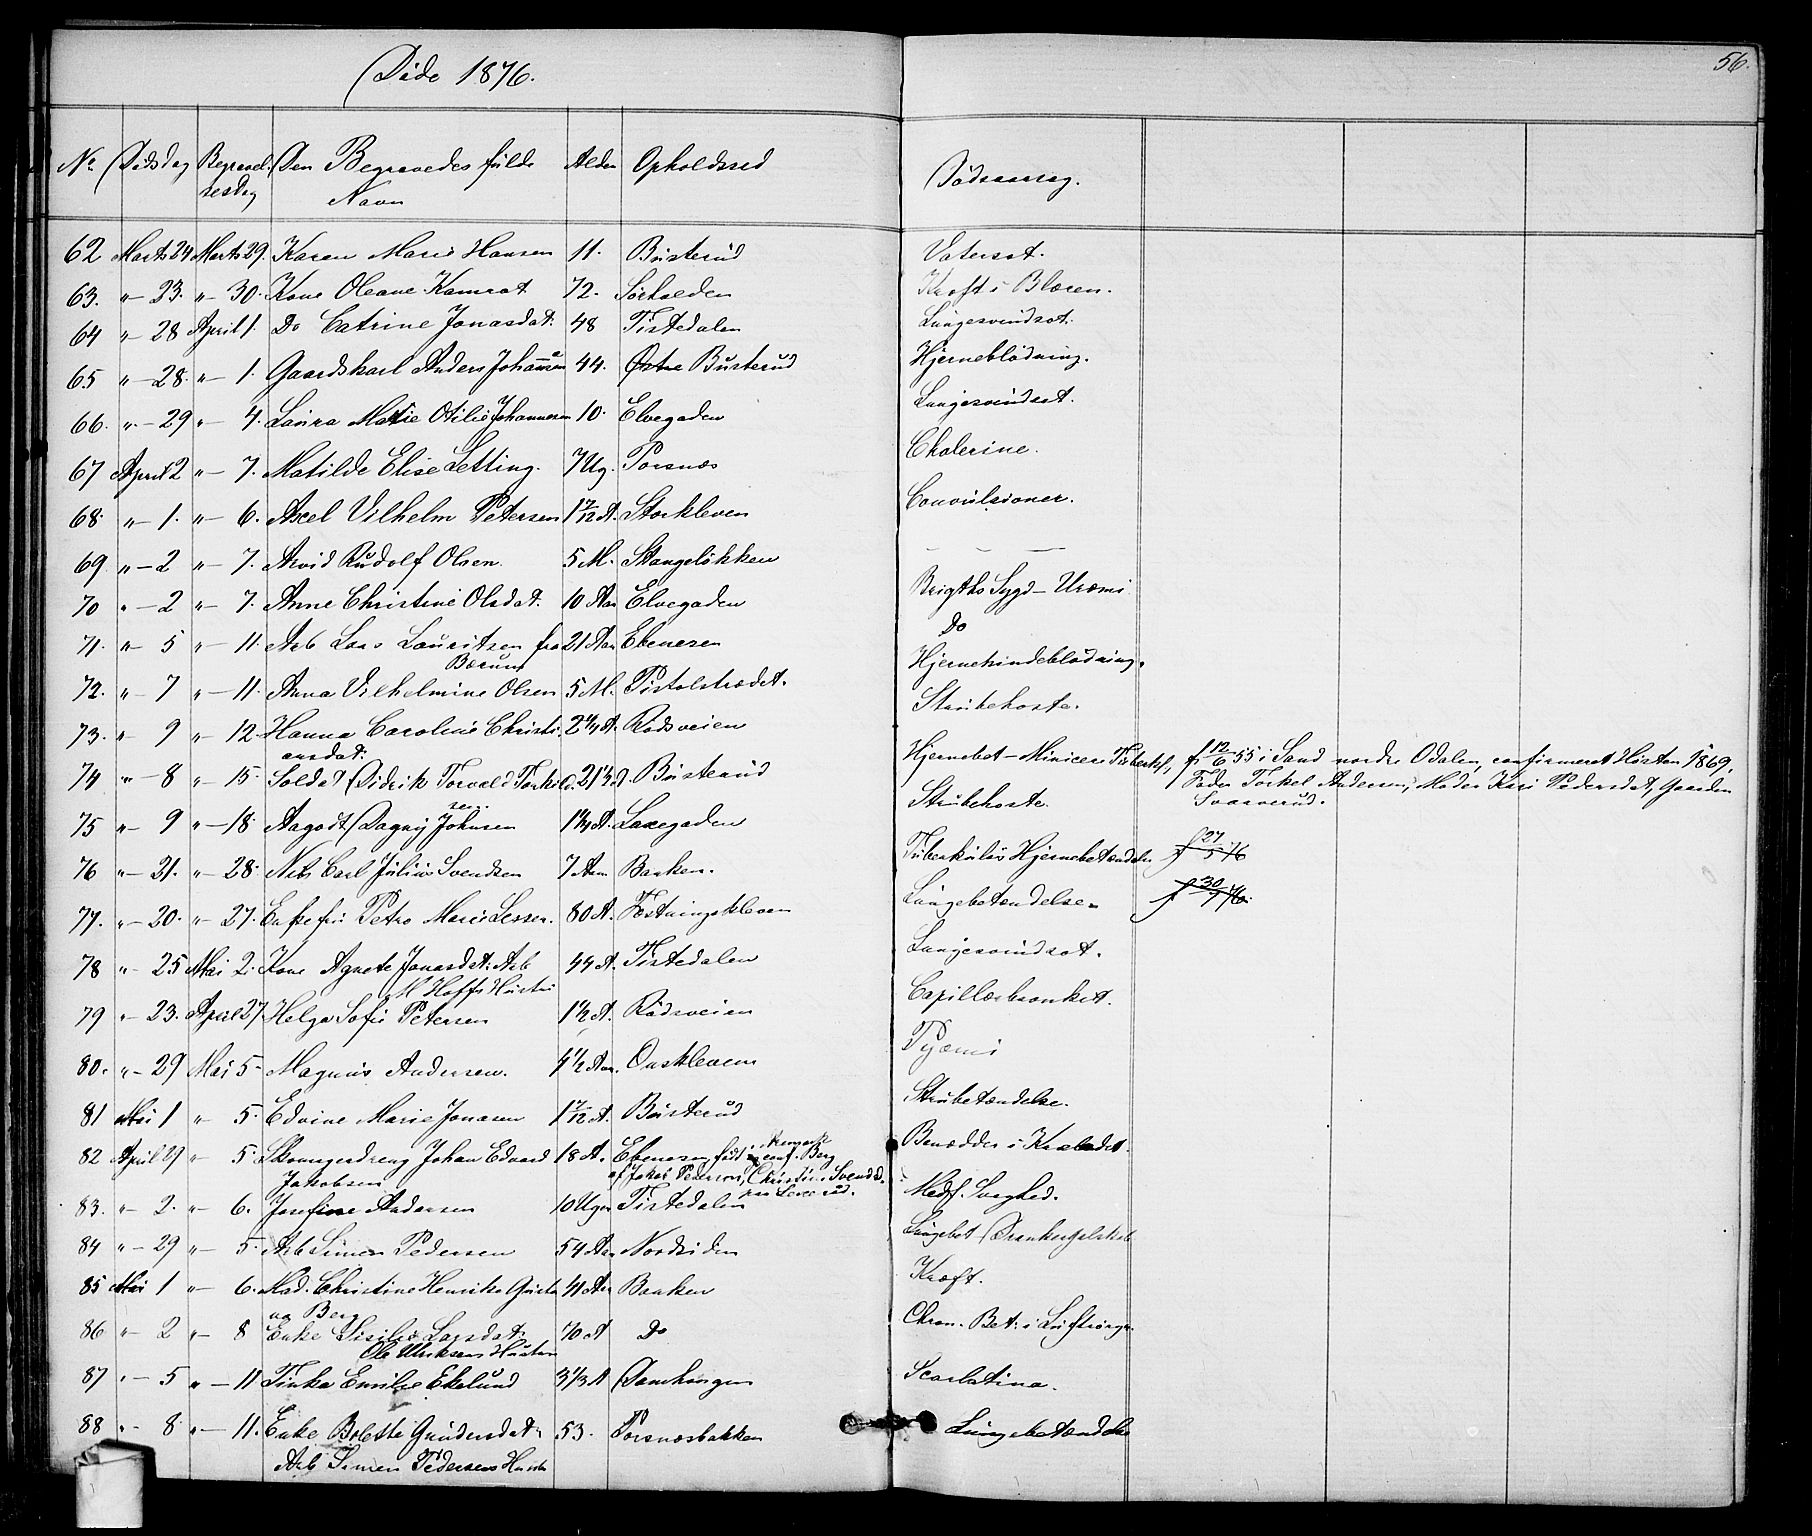 Døde 1876.
56.
No Dødsdag Begravelsesdag Den Begravedes fulde Navn Alder Opholdssted Dødsaarsag.
62 Marts 24 Marts 29. Karen Marie Hansen 11. Busterud Vatersot.
63. " – 23. " – 30. Kone Oleane Kamrat 72. Sørhalden Kræft i Blæren.
64 " – 28 April 1. Do Catrine Jonasdat: 48 Tistedalen Lungesvindsot.
65 " – 28. " – 1. Gaardskarl Anders Johannesen 44. Østre Busterud Hjerneblødning.
66. " – 29 " – 4. Laura Marie Otilie Johannesen 10. Elvegaden Lungesvindsot.
67 April 2 " – 7. Matilde Elise Letting. 7 Ug. Porsnæs Cholerine.
68. " – 1. " – 6. Axel Vilhelm Petersen 1 7/12 A. Storkleven Convulsioner.
69 " – 2 " – 7. Arvid Rudolf Olsen. 5 M. Stangeløkken – – –
70 " – 2 " – 7. Anne Christine Olsdat. 10 Aar Elvegaden Brigths Sygd – Uræmi
71. " – 5 " – 11. Arb Lars Lauritsen fra 21 Aar Ebenesen Do
Bærum
72. " – 7 " – 11. Anna Vilhelmine Olsen 5 M. Pistolstrædet. Hjernehindeblødning.
73. " – 9 " – 12. Hanna Caroline Christi- 2 1/4 A. Rødsveien Strubehoste.
ansdat.
74 " – 8 " – 15. Soldat Didrik Torvald Torkil- 21 1/2 Busterud Hjernebet – f 12/6 55 i Sand nordre Odalen, confirmeret Høsten 1869,
sen. Fader Torkel Andersen, Moder Kari Pedersdat, Gaarden
Svarverud.
75 " – 9 " – 18. Aagodt Dagny Johnsen 1 1/4 A. Laxegaden Strubehoste.
76 " – 21. " – 28. Nils Carl Julius Svendsen 7 Aar Banken. Tuberkuløs Hjernebetændelse f 27/5 76
77. " – 20. " – 27. Enkefru Petro Marie Lessen. 80 A. Fæstningskleven Lungebetændelse. f 30/7 76.
78 " – 25 Mai 2. Kone Agnete Jonasdat. Arb 44 A. Tistedalen Lungesvindsot.
M Hoffs Hustru
79 " – 23. April 27 Helga Sofie Petersen 1 1/2 A. Rødsveien Capillærbronket.
80. " – 29 Mai 5 – Magnus Andersen. 4 1/2 Aar. Oaskleven Pyæmi
81 Mai 1 " – 5. Edvine Marie Jonasen 1 7/12 A. Busterud Strubetændelse.
82 April 29 " – 5. Skomagerdreng Johan Edvard 18 A. Ebenesen, født i conf. Berg Benedder i Knæledet.
Jakobsen af Jakob Pedersen, Christine Svendsd.
83. " – 2. " – 6. Josefine Andersen 10 Uger Tistedalen Medf. Svaghed.
84 " – 29 " – 5. Arb Simen Pedersen 54 Aar Nordsiden Lungebet
85 Mai 1 " – 6. Mad. Christine Henrike Gusta 41 Aar Banken Kræft.
va Berg
86 " – 2 " – 8 Enke Sisilie Larsdat: 70 A Do Chron. Bet. i Luftrør
Ole Ulriksens Hustru
87 " – 5 " – 11 Tinka Emilie Ekelund 3 1/3 A Damhaugen Scarlatina.
88 " – 8 " – 11. Enke Bolette Gundersdat. 53. Porsnæsbakken Lungebetændelse
Arb Simen Pedersens Hustru